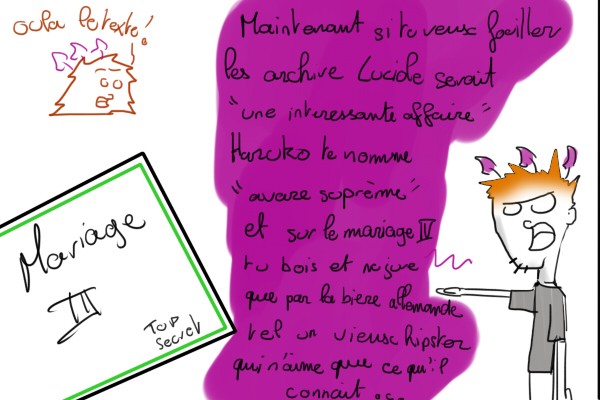 Octa le texte !
Maintenant si tu veux fouiller
les archive Lucide serait
"une interessante affaire"
Haruko te nomme
"avare suprème"
et sur le mariage IV
tu bois et ne jure
que par la bière allemande
tel un vieux hipster
qui n'aime que ce qu'il
connait ...
Mariage
III
Top
secret